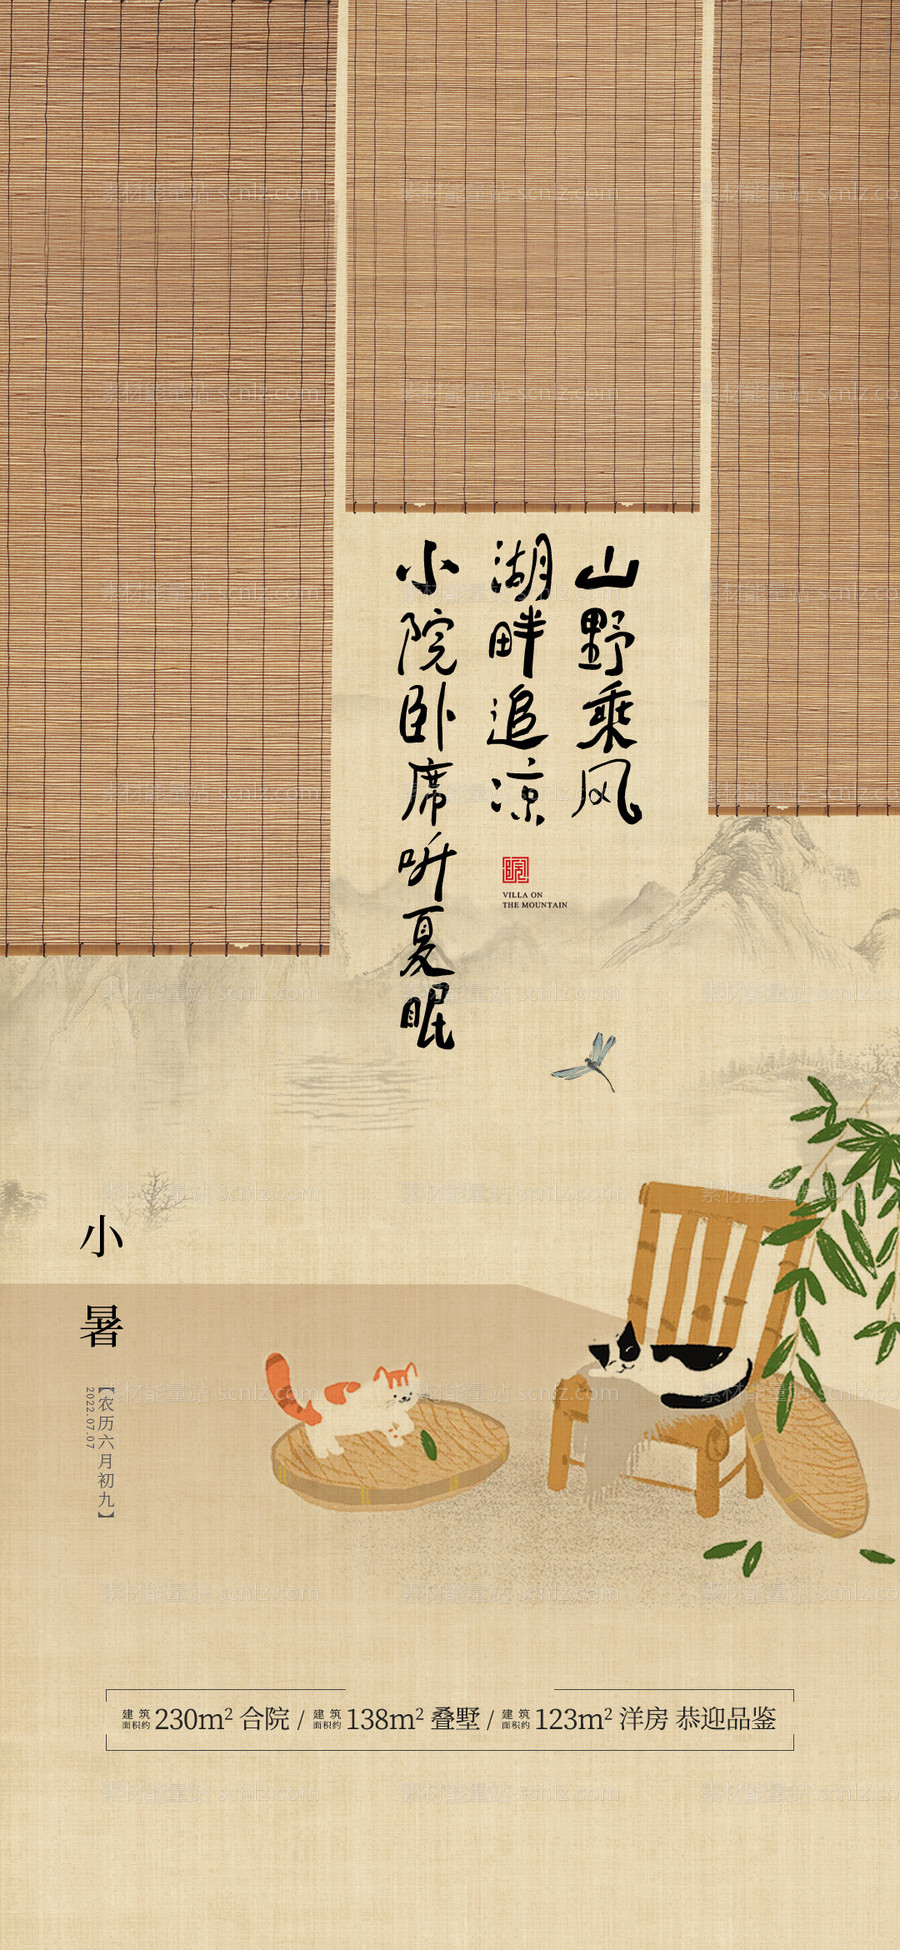 山野乘风
湖畔追凉
小院卧席听夏眠
VILLA ON
THE MOUNTAIN
小暑
【农历六月初九】
2022.07.07
建筑面积约230m² 合院 / 建筑面积约138m² 叠墅 / 建筑面积约123m² 洋房 恭迎品鉴
素材能量站 scnlz.com